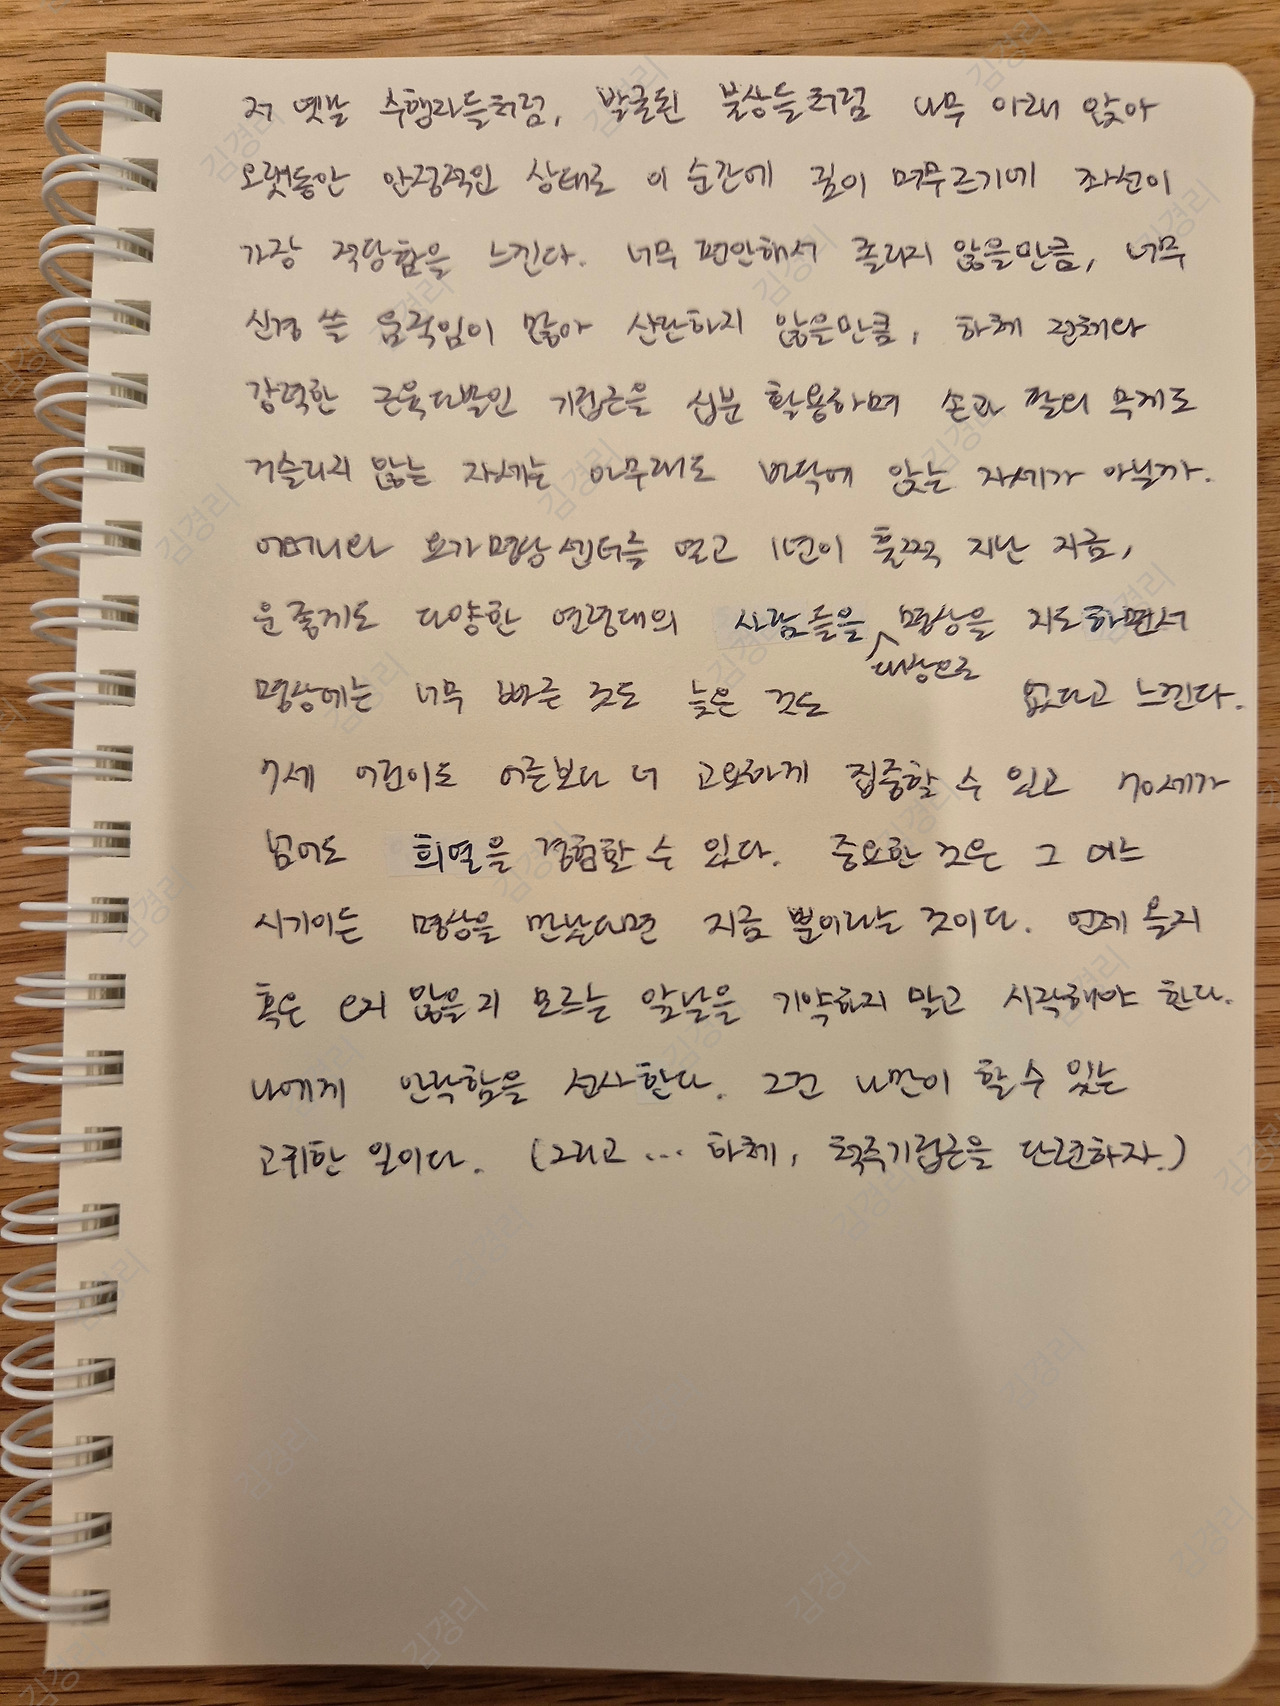 저 옛날 수행자들처럼, 발굴된 불상들처럼 나무 아래 앉아
오랫동안 안정적인 상태로 이 순간에 깊이 머무르기에 좌선이
가장 적당함을 느낀다. 너무 편안해서 졸리지 않을만큼, 너무
신경 쓸 움직임이 많아 산란하지 않을만큼, 하체 전체와
강력한 근육다발인 기립근을 십분 활용하며 손과 팔의 무게도
거슬리지 않는 자세는 아무래도 바닥에 앉는 자세가 아닐까.
어머니와 요가명상센터를 열고 1년이 훌쩍 지난 지금,
운좋게도 다양한 연령대의 사람들을 대상으로 명상을 지도하면서
명상에는 너무 빠른 것도 늦은 것도 없다고 느낀다.
7세 어린이도 어른보다 더 고요하게 집중할 수 있고 70세가
넘어도 희열을 경험할 수 있다. 중요한 것은 그 어느
시기이든 명상을 만난다면 지금 뿐이라는 것이다. 언제 올지
혹은 오지 않을지 모르는 앞날을 기약하지 말고 시작해야 한다.
나에게 안락함을 선사한다. 그건 나만이 할 수 있는
고귀한 일이다. (그리고 ... 하체, 척추기립근을 단련하자.)
김경리